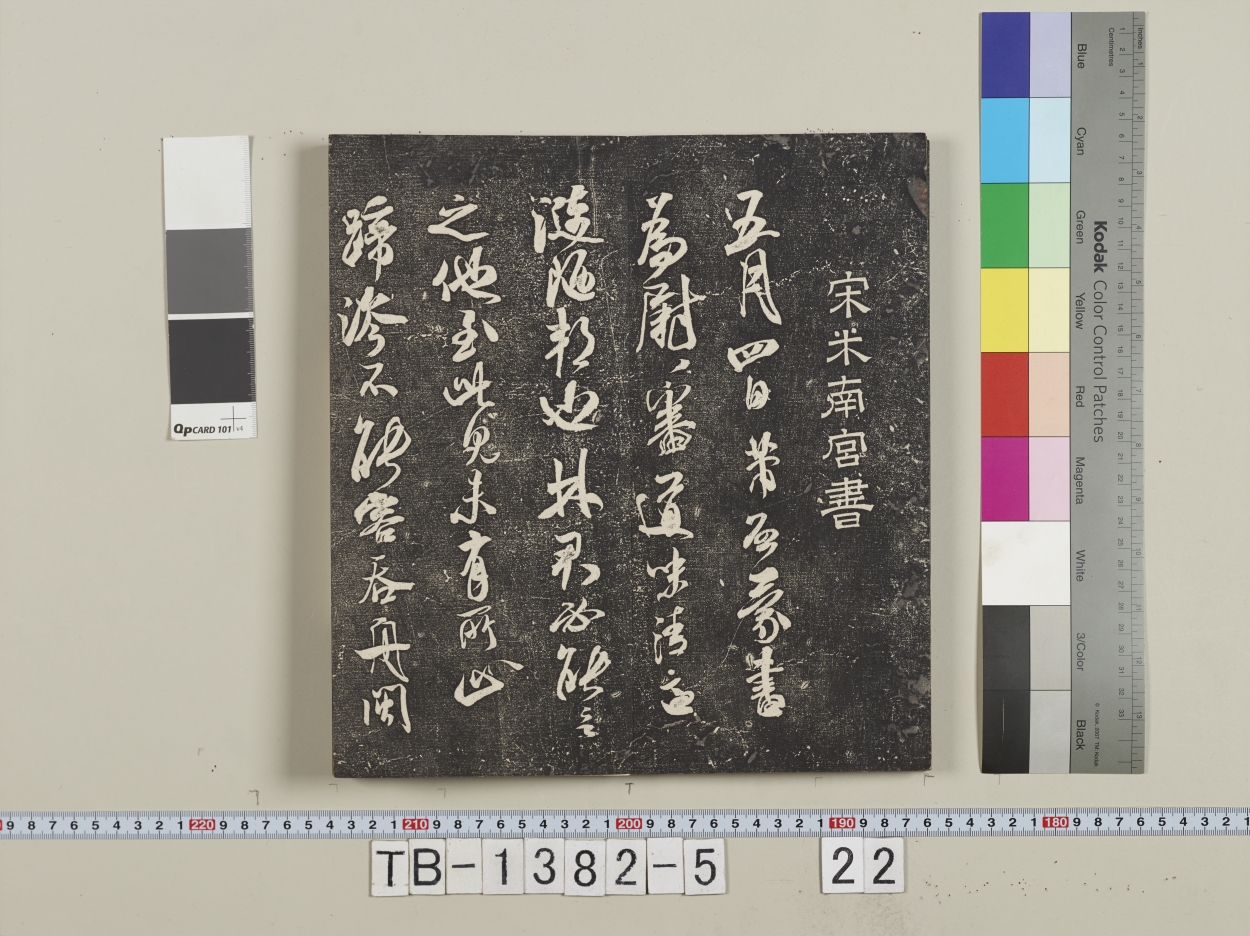 宋米南宮書
五月四日芾啓蒙書
為慰審道味清適
漣陋邦也林君必能言
之他至此見未有所止
蹄涔不能容吞舟閩
Kodak Color Control Patches
Blue
Cyan
Green
Yellow
Red
Magenta
White
3/Color
Black
Inches
Centimetres
© Kodak, 2007 TM: Kodak
QPCARD 101 v4
220 210 200 190 180
TB-1382-5 22